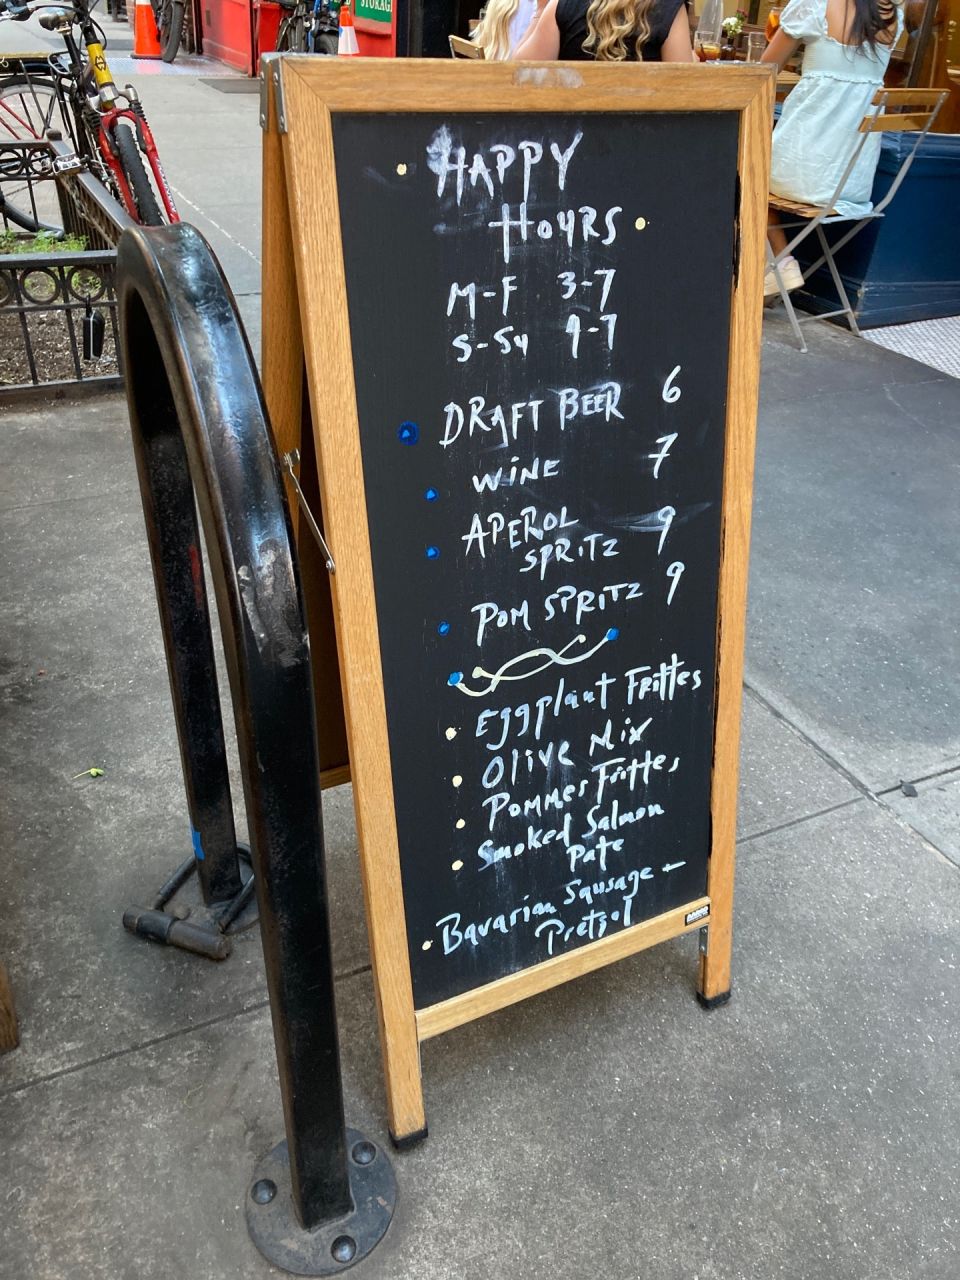 STORAGE
HAPPY
HOURS
M-F 3-7
S-Su 4-7
DRAFT BEER 6
WINE 7
APEROL 9
SPRITZ
POM SPRITZ 9
Eggplant Frittes
Olive Mix
Pommes Frittes
Smoked Salmon
Pate
Bavarian Sausage -
Pretzel